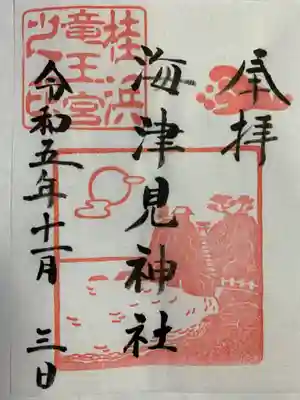 奉拝
海津見神社
令和五年十一月三日
桂浜
竜王宮
之印